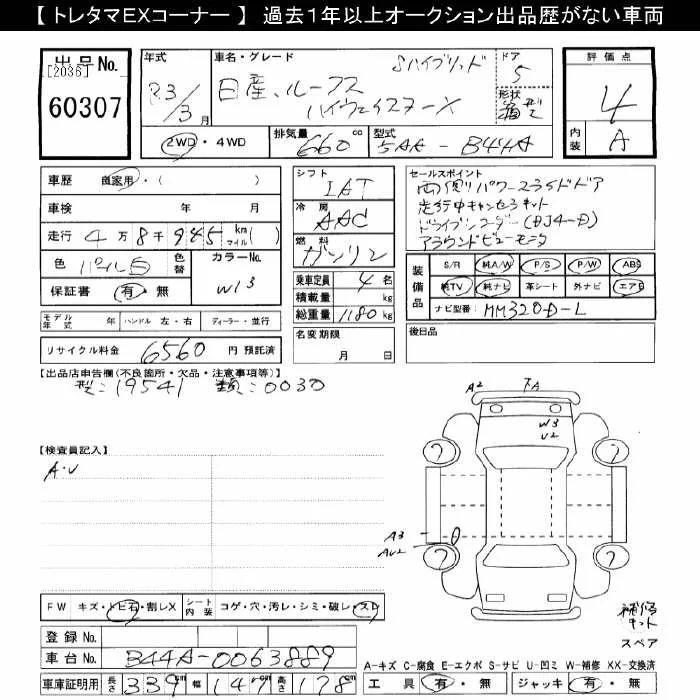 【 トレタマEXコーナー 】 過去1年以上オークション出品歴がない車両
出品 No.
[2036]
60307
年式
3/3月
車名・グレード
日産、ルークス
Sハイブリッド
ハイウェイスターX
ドア
5
形状
評価点
4
内装
A
2WD・4WD
排気量 660 cc
型式 5AA-B44A
車歴 自家用・( )
車検 年 月
走行 4万8千945 km マイル( )
色 パール
色替
カラーNo.
W13
保証書 有・無
モデル年式 年
ハンドル 左・右
ディーラー・並行
リサイクル料金 6560 円 預託済
シフト
IAT
冷房
AAC
燃料
ガソリン
乗車定員 4 名
積載量 kg
総重量 1180 kg
名変期限
月 日
セールスポイント
両側パワースライドドア
走行中キャンセラキット
ドライブレコーダー(DJ4-D)
アラウンドビューモニタ
装備品
S/R 純A/W P/S P/W ABS
純TV 純ナビ 革シート 外ナビ エアB
ナビ型番: MM320D-L
後日品
【出品店申告欄(不良箇所・欠品・注意事項等)】
型:19541 類:0030
【検査員記入】
A・U
A2
下A
W3
U2
A3
AU2
補修キット
スペア
FW キズ・トビ石・割レX
シート内装 コゲ・穴・汚レ・シミ・破レ・スレ
登録 No.
車台 No. B44A-0063889
車庫証明用 長さ 339cm 幅 147cm 高さ 178cm
A-キズ C-腐食 E-エクボ S-サビ U-凹ミ W-補修 XX-交換済
工具 有・無 ジャッキ 有・無